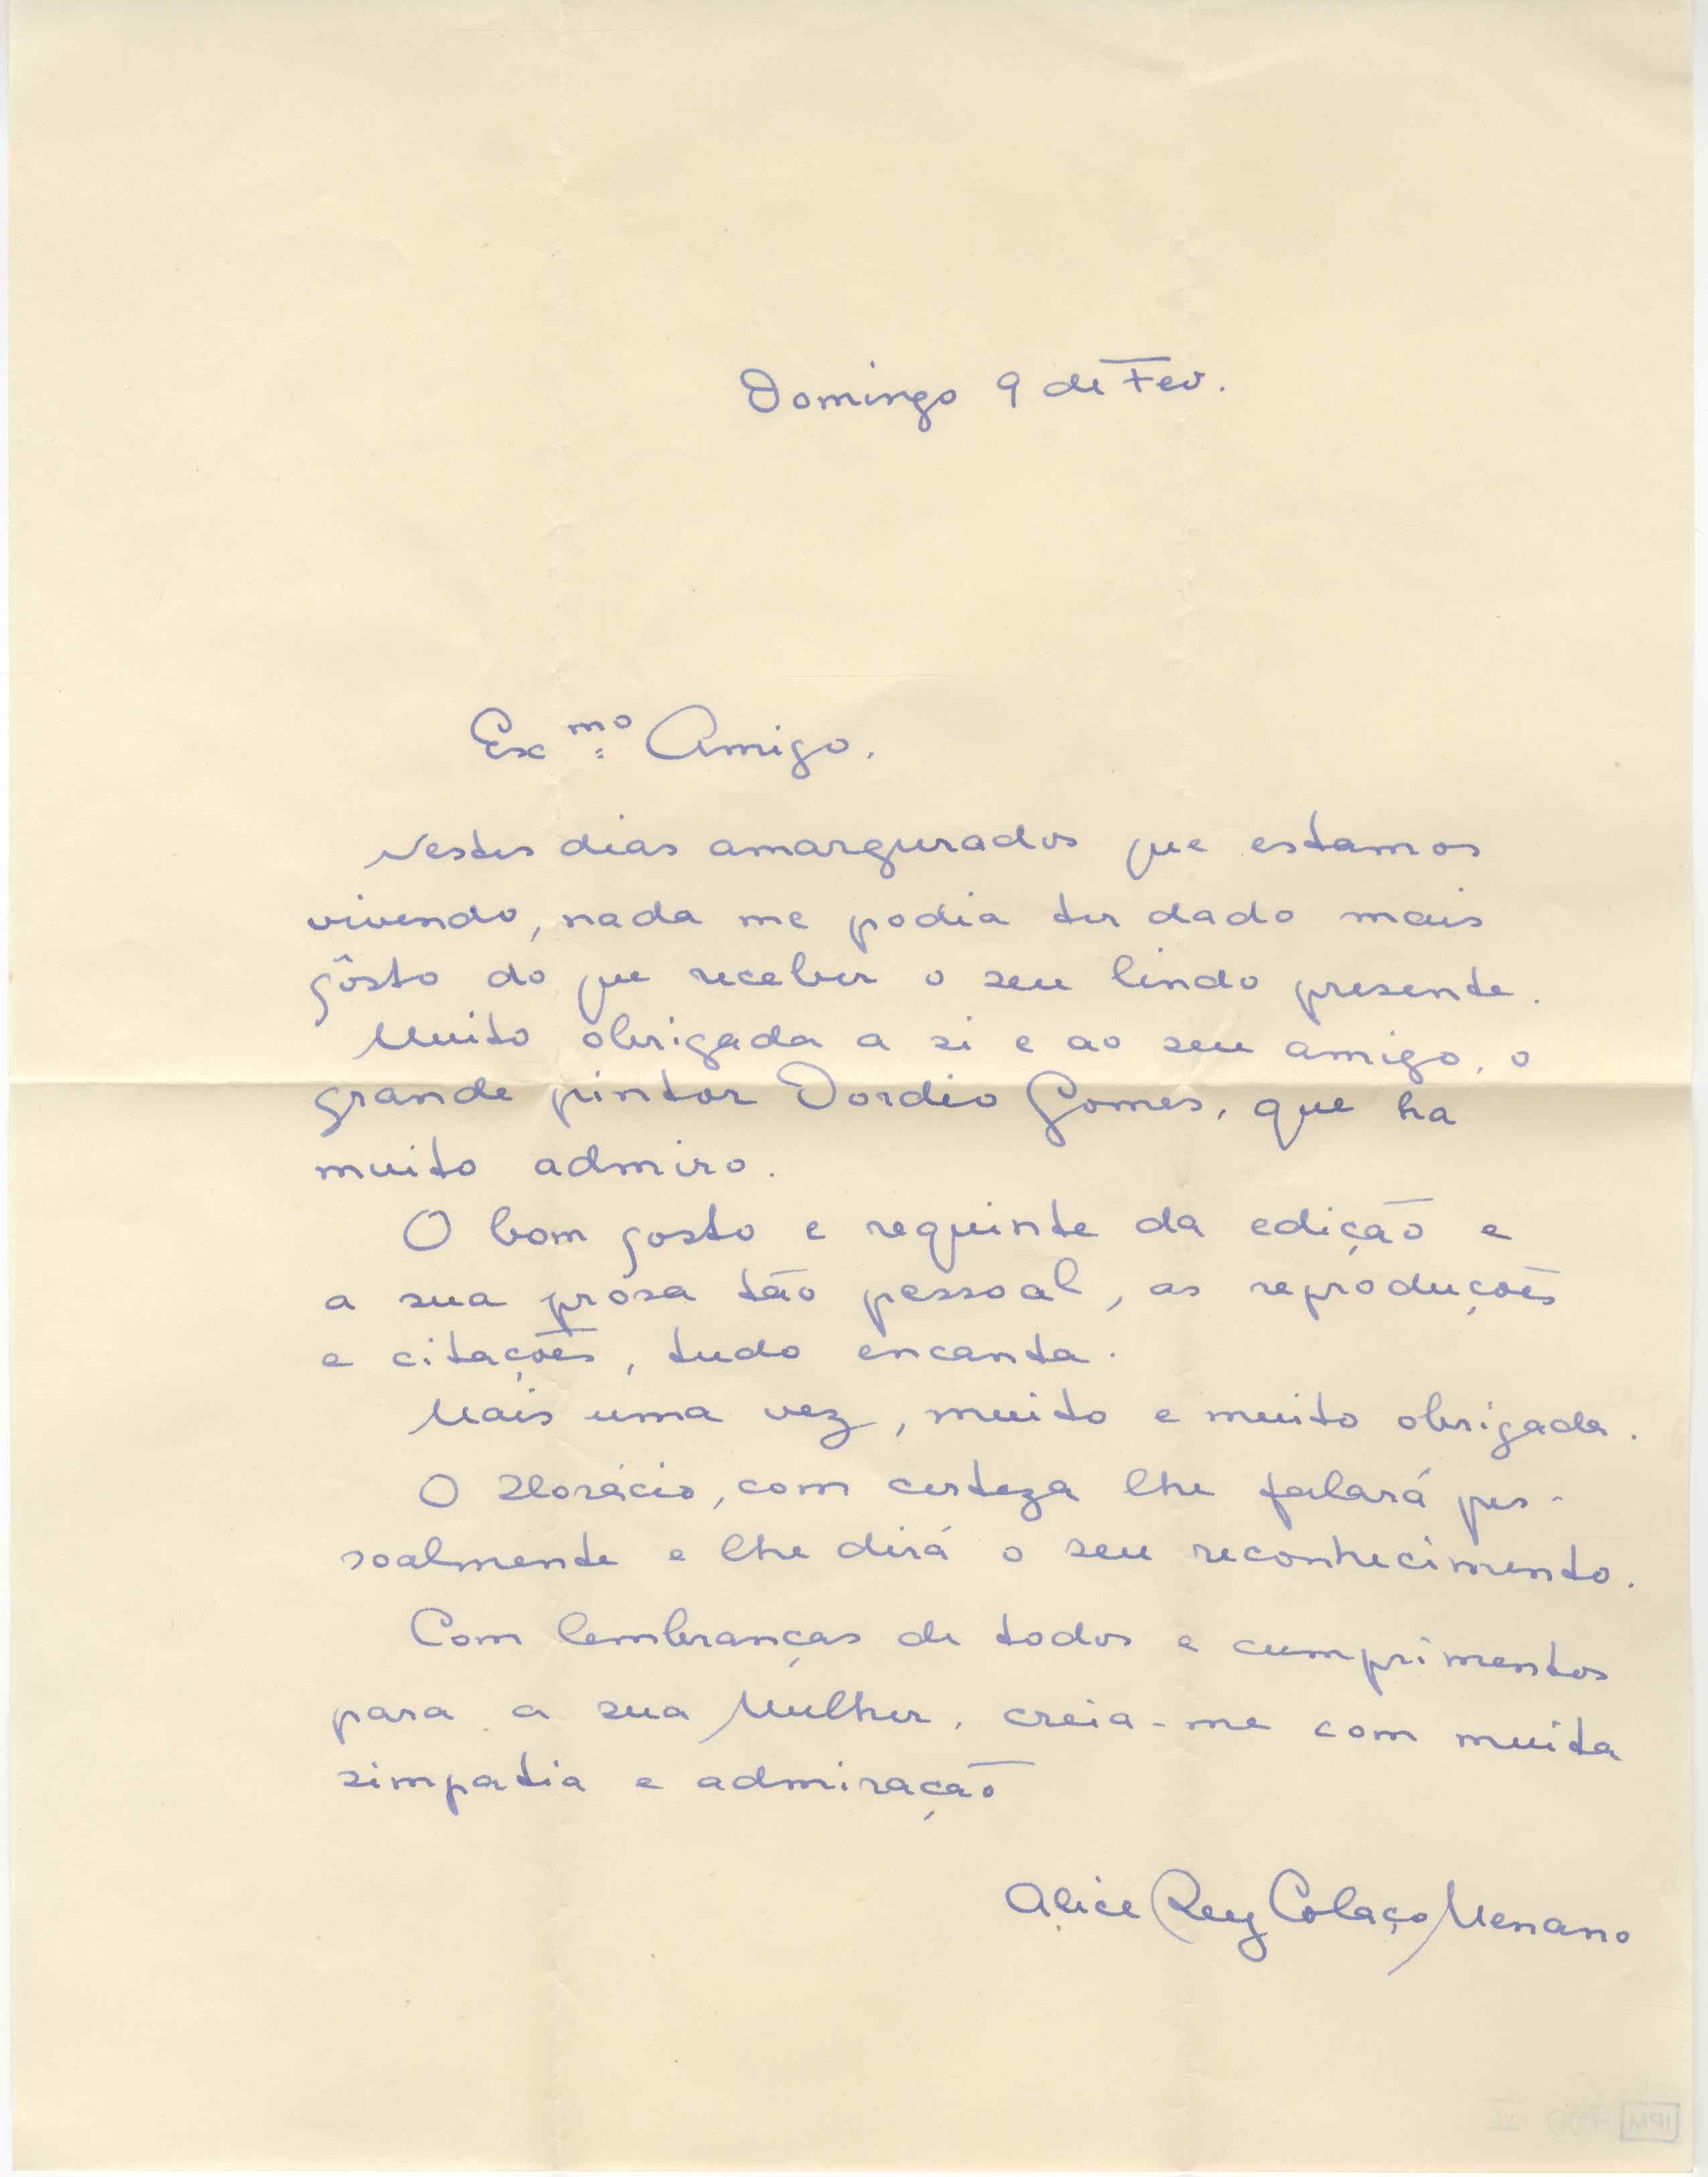 Domingo 9 de Fev.
Ex.mo Amigo.
Nestes dias amargurados que estamos
vivendo, nada me podia ter dado mais
gôsto do que receber o seu lindo presente.
Muito obrigada a si e ao seu amigo, o
grande pintor Dordio Gomes, que ha
muito admiro.
O bom gosto e requinte da edição e
a sua prosa tão pessoal, as reproduções
e citações, tudo encanta.
Mais uma vez, muito e muito obrigada.
O Horácio, com certeza lhe falará pes-
soalmente e lhe dirá o seu reconhecimento.
Com lembranças de todos e cumprimentos
para a sua Mulher, creia-me com muita
simpatia e admiração
Alice Rey Colaço Menano
IPM